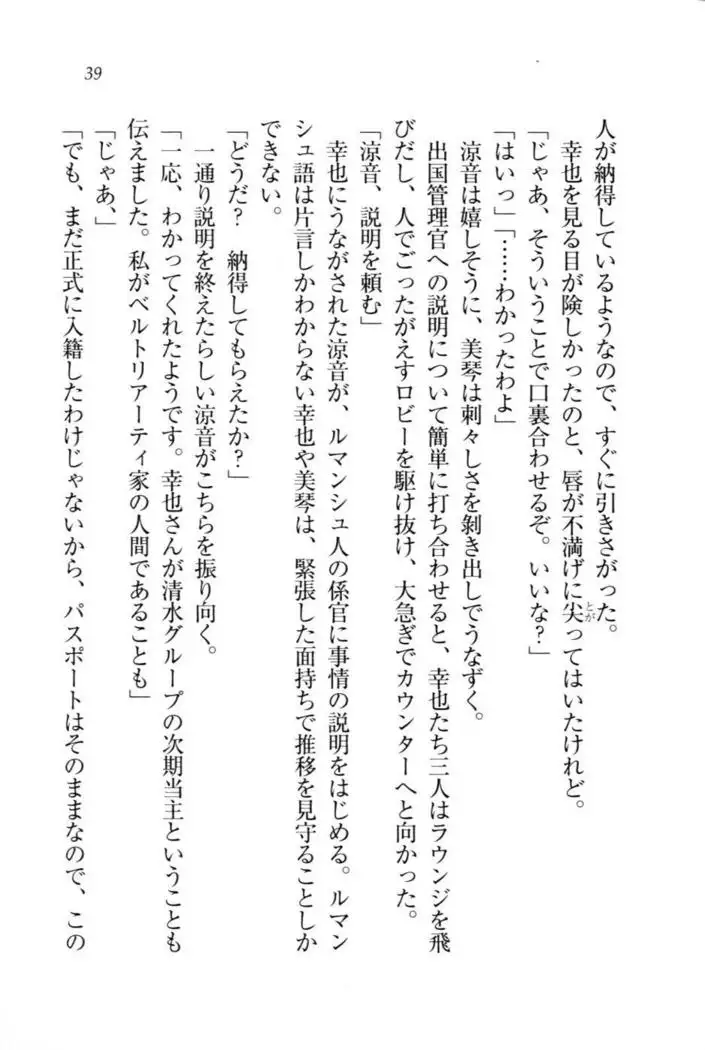 39
人が納得しているようなので、すぐに引きさがった。
幸也を見る目が険しかったのと、唇が不満げに尖ってはいたけれど。
とが
「じゃあ、そういうことで口裏合わせるぞ。いいな？」
「はいっ」「……わかったわよ」
涼音は嬉しそうに、美琴は刺々しさを剝き出しでうなずく。
出国管理官への説明について簡単に打ち合わせると、幸也たち三人はラウンジを飛
びだし、人でごったがえすロビーを駆け抜け、大急ぎでカウンターへと向かった。
「涼音、説明を頼む」
幸也にうながされた涼音が、ルマンシュ人の係官に事情の説明をはじめる。ルマン
シュ語は片言しかわからない幸也や美琴は、緊張した面持ちで推移を見守ることしか
できない。
「どうだ？　納得してもらえたか？」
一通り説明を終えたらしい涼音がこちらを振り向く。
「一応、わかってくれたようです。幸也さんが清水グループの次期当主ということも
伝えました。私がベルトリアーティ家の人間であることも」
「じゃあ、」
「でも、まだ正式に入籍したわけじゃないから、パスポートはそのままなので、この